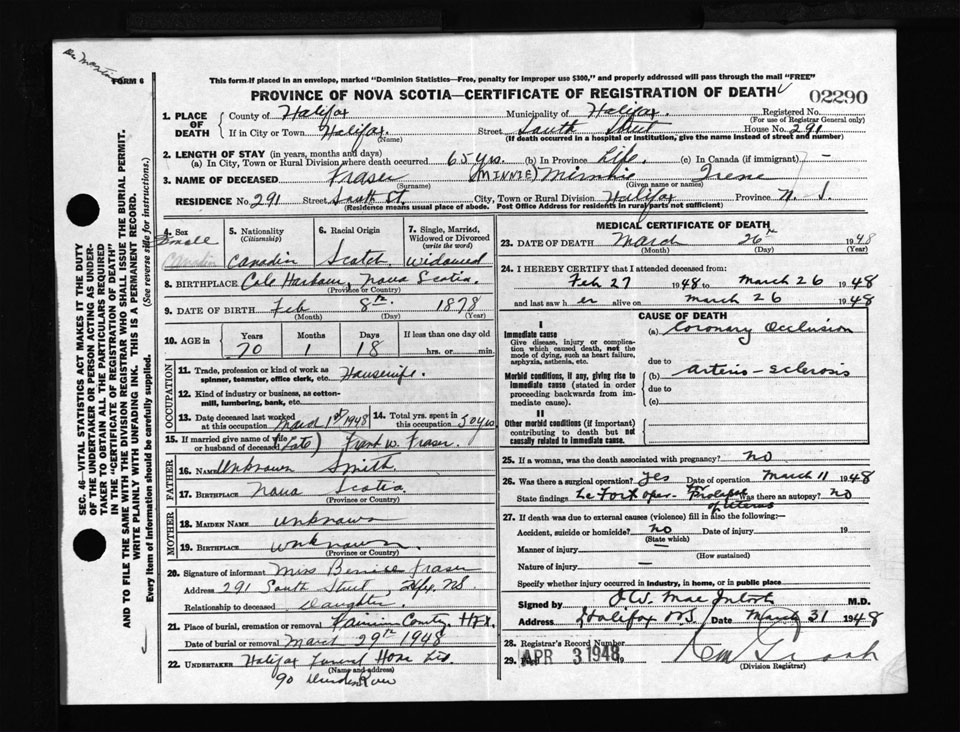 FORM 6
This form if placed in an envelope, marked "Dominion Statistics—Free, penalty for improper use $300," and properly addressed will pass through the mail "FREE"
PROVINCE OF NOVA SCOTIA—CERTIFICATE OF REGISTRATION OF DEATH
02290
1. PLACE OF DEATH
County of Halifax Municipality of Halifax Registered No.
(For use of Registrar General only)
If in City or Town Halifax (Name) Street South Street House No. 291
(If death occurred in a hospital or institution, give the name instead of street and number)
2. LENGTH OF STAY (in years, months and days)
(a) In City, Town or Rural Division where death occurred 65 yrs. (b) In Province Life. (c) In Canada (if immigrant) -
3. NAME OF DECEASED Fraser (MINNIE) Minnie Irene
(Surname) (Given name or names)
RESIDENCE No. 291 Street South St. City, Town or Rural Division Halifax Province N. S.
(Residence means usual place of abode. Post Office Address for residents in rural parts not sufficient)
4. Sex Female
5. Nationality (Citizenship) Canadian
6. Racial Origin Scotch
7. Single, Married, Widowed or Divorced (write the word) Widowed
8. BIRTHPLACE Cole Harbour, Nova Scotia.
(Province or Country)
9. DATE OF BIRTH Feb 8th 1878
(Month) (Day) (Year)
10. AGE in Years Months Days If less than one day old
70 1 18 hrs. or min.
OCCUPATION
11. Trade, profession or kind of work as spinner, teamster, office clerk, etc. Housewife.
12. Kind of industry or business, as cotton-mill, lumbering, bank, etc.
13. Date deceased last worked at this occupation March 1st 1948
14. Total yrs. spent in this occupation 50 yrs.
15. If married give name of wife or husband of deceased (late) Frank W. Fraser.
FATHER
16. Name Unknown Smith.
17. BIRTHPLACE Nova Scotia
(Province or Country)
MOTHER
18. MAIDEN NAME Unknown
19. BIRTHPLACE Unknown.
(Province or Country)
20. Signature of informant Miss Bernice Fraser
Address 291 South Street, Hfx. N.S.
Relationship to deceased Daughter.
21. Place of burial, cremation or removal County, HFX.
Date of burial or removal March 29th 1948
22. UNDERTAKER Halifax Funeral Home Ltd.
(Name and address)
90
MEDICAL CERTIFICATE OF DEATH
23. DATE OF DEATH March 26th 1948
(Month) (Day) (Year)
24. I HEREBY CERTIFY that I attended deceased from:
Feb 27 1948 to March 26 1948
and last saw her alive on March 26 1948
CAUSE OF DEATH
I
Immediate cause
Give disease, injury or complication which caused death, not the mode of dying, such as heart failure, asphyxia, asthenia, etc.
(a) Coronary Occlusion
due to
Morbid conditions, if any, giving rise to immediate cause (stated in order proceeding backwards from immediate cause).
(b) Arterio-sclerosis
due to
(c)
II
Other morbid conditions (if important) contributing to death but not causally related to immediate cause.
25. If a woman, was the death associated with pregnancy? no
26. Was there a surgical operation? Yes Date of operation March 11 1948
State findings Le Fort oper- for Prolapse of Uterus Was there an autopsy? no
27. If death was due to external causes (violence) fill in also the following:—
Accident, suicide or homicide? no Date of injury 19
(State which)
Manner of injury
(How sustained)
Nature of injury
Specify whether injury occurred in industry, in home, or in public place
Signed by MacIntosh M.D.
Address Halifax N.S. Date March 31 1948
28. Registrar's Record Number
29. Filed APR 3 1948
(Division Registrar)
SEC. 46—VITAL STATISTICS ACT MAKES IT THE DUTY
OF THE UNDERTAKER OR PERSON ACTING AS UNDER-
TAKER TO OBTAIN ALL THE PARTICULARS REQUIRED
IN THE "CERTIFICATE OF REGISTRATION OF DEATH"
AND TO FILE THE SAME WITH THE DIVISION REGISTRAR WHO SHALL ISSUE THE BURIAL PERMIT.
WRITE PLAINLY WITH UNFADING INK. THIS IS A PERMANENT RECORD.
Every item of Information should be carefully supplied. (See reverse side for instructions.)